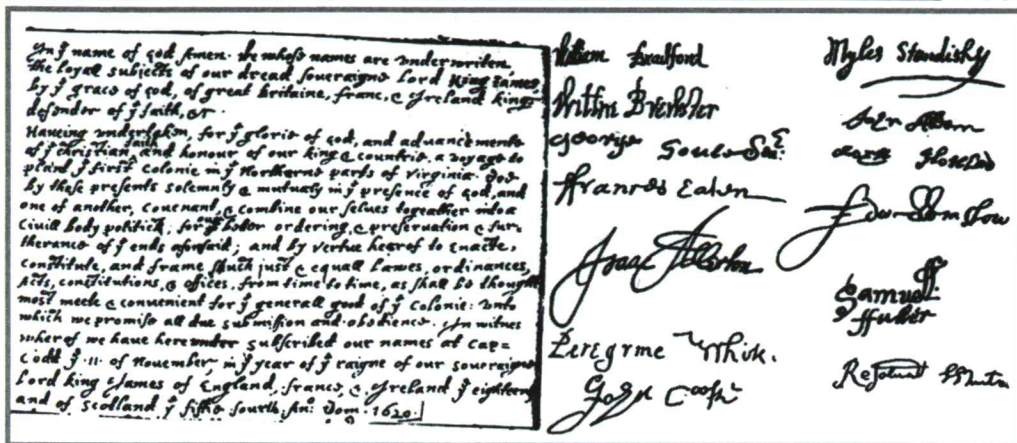 In yͤ name of god Amen. We whose names are underwriten,
the loyall subjects of our dread soueraigne Lord King James
by yͤ grace of god, of great britaine, franc, & Ireland king,
defender of yͤ faith, &c.
Haueing undertaken, for yͤ glorie of god, and advancemente
of yͤ christian faith and honour of our king & countrie, a voyage to
plant yͤ first colonie in yͤ Northerne parts of virginia. doe
by these presents solemnly & mutualy in yͤ presence of god, and
one of another, couenant, & combine our selues togeather into a
Civill body politick; for our better ordering, & preseruation & fur=
therance of yͤ ends aforesaid; and by vertue hearof to Enacte,
constitute, and frame shuch just & equall Lawes, ordinances,
Acts, constitutions, & offices, from time to time, as shall be thought
most meete & convenient for yͤ generall good of yͤ Colonie: unto
which we promise all due submission and obedience. In witnes
wherof we have hereunder subscribed our names at Cap=
Codd yͤ .11. of November, in yͤ year of yͤ raigne of our soueraigne
Lord king James of England, france, & Ireland yͤ eighteenth
and of Scotland yͤ fiftie fourth. Ano: Dom. 1620.
William Bradford
Myles Standish
Willm Brewster
George Soule
Francis Eaton
Edw Winslow
Isaac Allerton
Samuell
ffuller
Peregrine White.
John Cooke
Resolved White